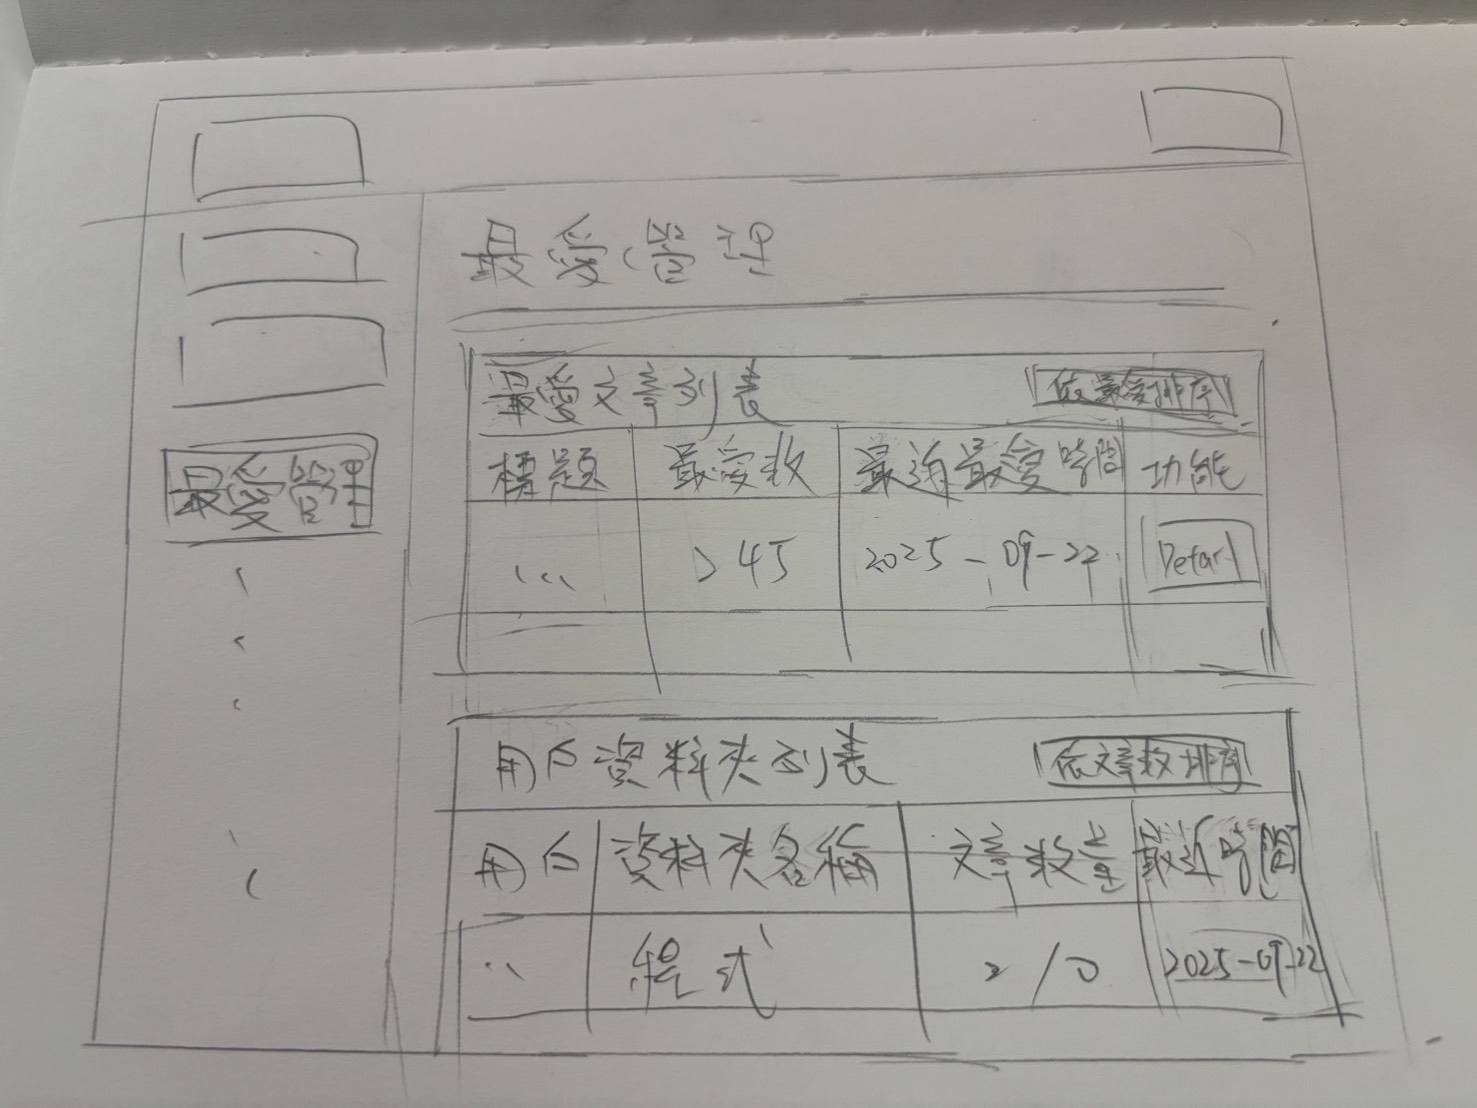 最愛管理
最愛管理
最愛文章列表 依最愛排序
標題 最愛數 最近最愛時間 功能
... 245 2025-09-22 Detail
用戶資料夾列表 依文章數排序
用戶 資料夾名稱 文章數量 最近時間
.. 程式 210 2025-09-22